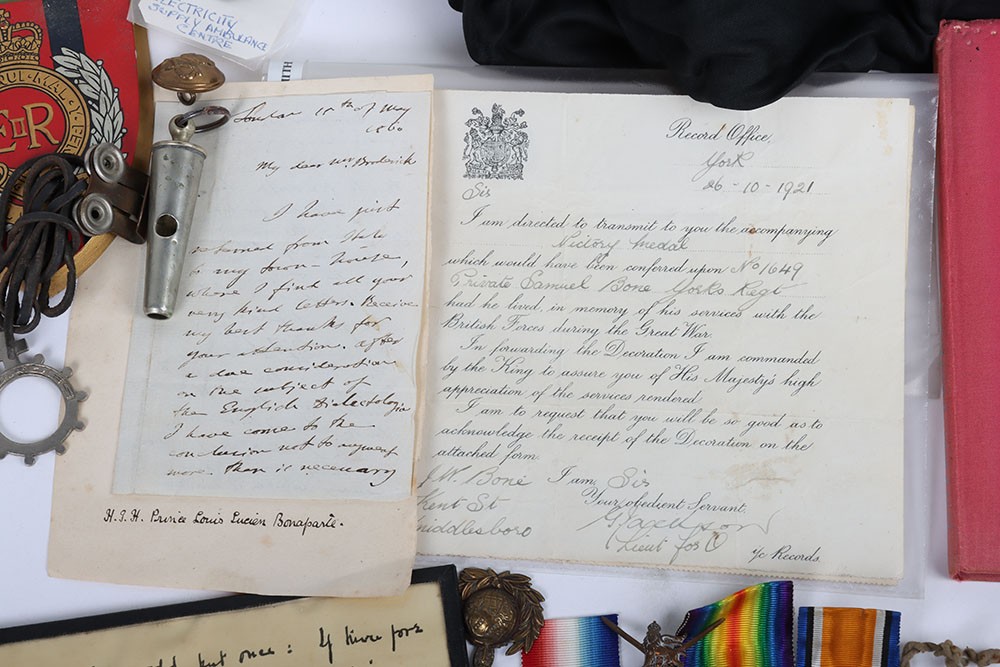 ELECTRICITY
SUPPLY AMBULANCE
CENTRE
E II R
London 15th of May
1860
My dear Mr. Broderick
I have just
returned from
to my town-house,
where I find all your
very kind letters. Receive
my best thanks for
your attention. After
a due consideration
on the subject of
the English Dialectologia
I have come to the
conclusion not to
more than is necessary
H.I.H. Prince Louis Lucien Bonaparte.
Record Office,
York
26-10-1921
Sir
I am directed to transmit to you the accompanying
Victory Medal
which would have been conferred upon No 1649
Private Samuel Bone Yorks Regt
had he lived, in memory of his services with the
British Forces during the Great War.
In forwarding the Decoration I am commanded
by the King to assure you of His Majesty's high
appreciation of the services rendered.
I am to request that you will be so good as to
acknowledge the receipt of the Decoration on the
attached form.
W. Bone
Kent St
Middlesboro
I am, Sir
Your obedient Servant,
Lieut for O
i/c Records.
but once: If